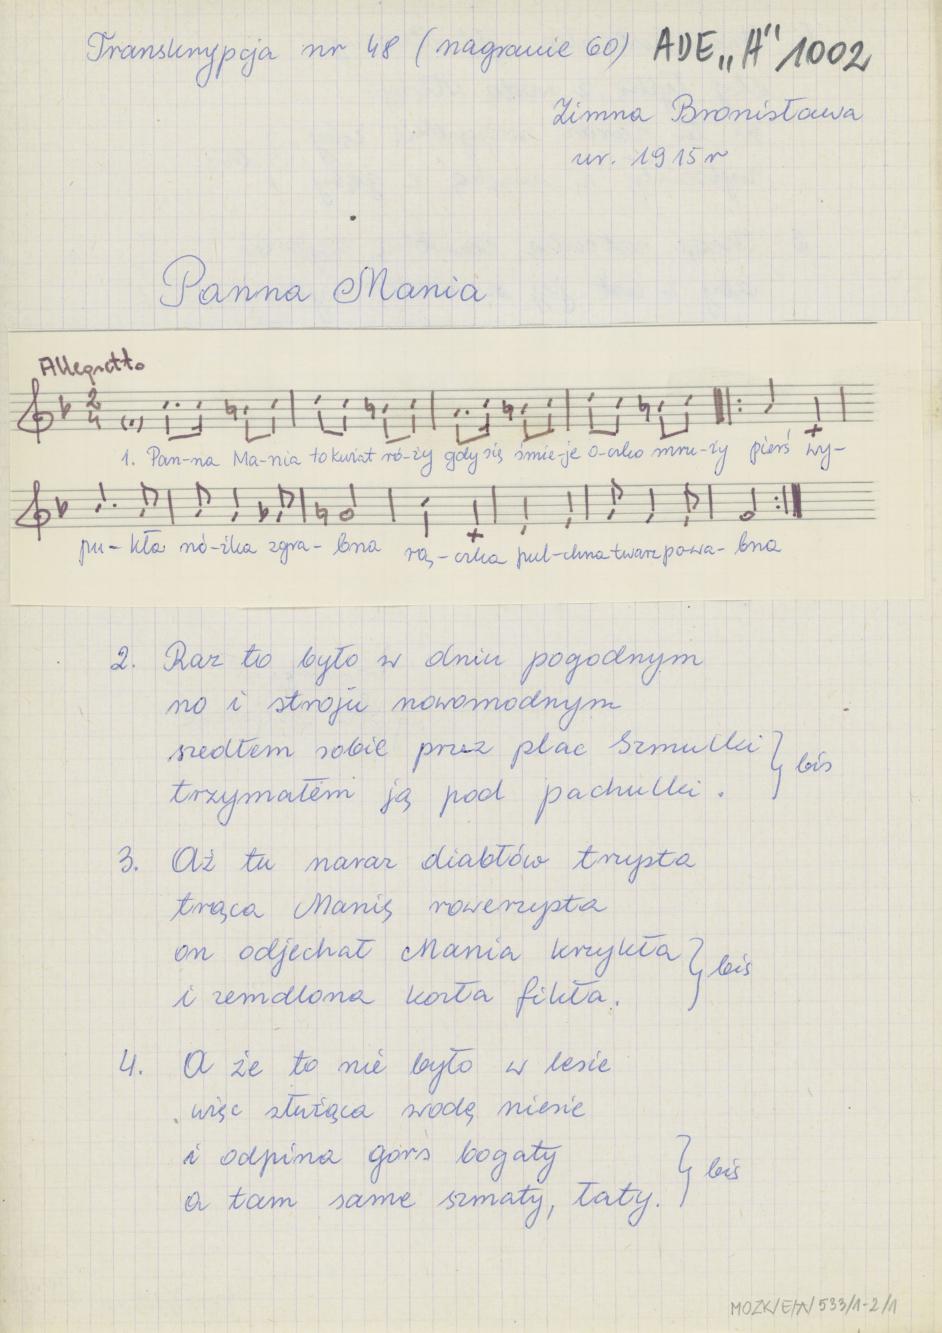 Transkrypcja nr 48 (nagranie 60) ADE „A" 1002
Zimna Bronisława
ur. 1915 r
Panna Mania
Allegretto
1. Pan-na Ma-nia to kwiat ró-ży gdy się śmie-je o-czko mru-ży pierś wy-
pu-kła nó-żka zgra-bna rą-czka pul-chna twarz powa-bna
2. Raz to było w dniu pogodnym
no i stroju nowomodnym
szedłem sobie przez plac Szmulki
trzymałem ją pod pachulki. } bis
3. Aż tu naraz diabłów trzysta
trąca Manię rowerzysta
on odjechał Mania krzykła
i zemdlona kozła fikła. } bis
4. A że to nie było w lesie
więc służąca wodę niesie
i odpina gors bogaty
a tam same szmaty, łaty. } bis
MOZK/E/A/533/1-2/1